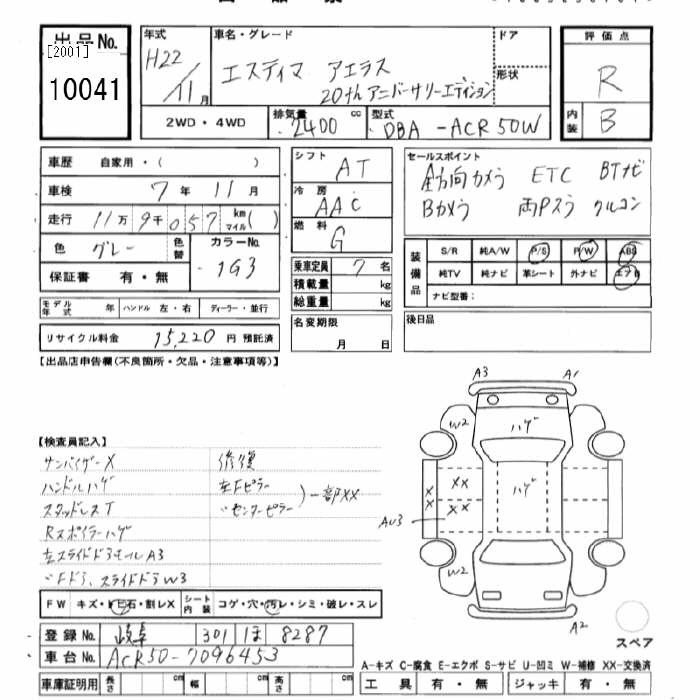 出品No.
[2001]
10041
年式 H22/11月
車名・グレード エスティマ アエラス
20thアニバーサリーエディション
ドア
形状
2WD・4WD
排気量 2400cc
型式 DBA-ACR50W
評価点
R
内装 B
車歴 自家用・( )
車検 7年 11月
走行 11万9千057km マイル( )
色 グレー 色替
カラーNo. 1G3
保証書 有・無
モデル年式 年 ハンドル 左・右 ディーラー・並行
リサイクル料金 15,220円 預託済
シフト AT
冷房 AAC
燃料 G
乗車定員 7名
積載量 kg
総重量 kg
名変期限
月 日
セールスポイント
全方向カメラ ETC BTナビ
Bカメラ 両Pスラ クルコン
装備品
S/R 純A/W P/S P/W ABS
純TV 純ナビ 革シート 外ナビ エアB
ナビ型番:
後日品
【出品店申告欄(不良箇所・欠品・注意事項等)】
【検査員記入】
サンバイザーX
ハンドルハゲ
スタッドレスT
Rスポイラーハゲ
左スライドドアモールA3
〃Fドア、スライドドアW3
修復
左Fピラー
〃センターピラー
)一部XX
FW キズ・ヒ石・割レX
シート内装 コゲ・穴・汚レ・シミ・破レ・スレ
登録No. 岐阜 301 ほ 8287
車台No. ACR50-7096453
車庫証明用 長さ cm 幅 cm 高さ cm
A3 A1
W2 ハゲ
XX
XX
X
X
ハゲ
AU3
W2
A2
スペア
A-キズ C-腐食 E-エクボ S-サビ U-凹ミ W-補修 XX-交換済
工具 有・無 ジャッキ 有・無